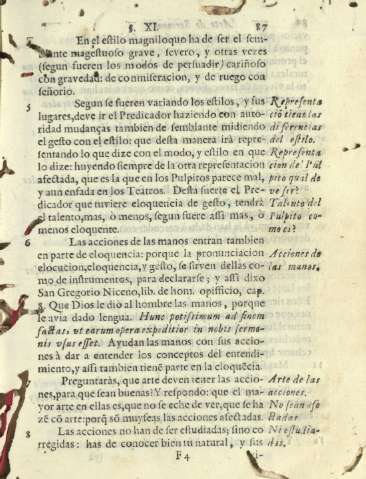 §. XI. 87
En el estilo magniloquo ha de ser el sem-
blante magestuoso grave, severo, y otras vezes
(segun fueren los modos de persuadir) cariñoso
con gravedad: de conmiseracion, y de ruego con
señorio.
5 Segun se fueren variando los estilos, y sus
lugares, deve ir el Predicador haziendo con auto-
ridad mudanças tambien de semblante midiendo
el gesto con el estilo: que desta manera irà repre-
sentando lo que dize con el modo, y estilo en que
lo dize: huyendo siempre de la otra representacion
afectada, que es la que en los Pulpitos parece mal,
y aun enfada en los Teatros. Desta suerte el Pre-
dicador que tuviere eloquencia de gesto, tendrá
el talento, mas, ò menos, segun fuere assi mas, ò
menos eloquente.
Representa
ciõ tiene las
diferencias
del estilo.
Representa
cion de Pul
pito qual de
ve ser?
Talento del
Pulpito co-
mo es?
6 Las acciones de las manos entran tambien
en parte de eloquencia: porque la pronunciacion
elocucion, eloquencia, y gesto, se sirven dellas co-
mo de instrumentos, para declararse; y assi dixo
San Gregorio Niceno, lib. de hom. opificio, cap.
8. Que Dios le diò al hombre las manos, porque
le avia dado lengua. Hunc potissimum ad finem
factas, ut earum opera expeditior in nobis sermo-
nis usus esset. Ayudan las manos con sus accio-
nes à dar a entender los conceptos del entendi-
miento, y assi tambien tienẽ parte en la eloquẽcia.
Acciones de
las manos.
7 Preguntaràs, que arte deven tener las accio-
nes, para que sean buenas? Y respondo: que el ma-
yor arte en ellas es, que no se eche de ver, que se ha
zẽ cõ arte: porq̃ sõ muy feas las acciones afectadas.
Arte de las
acciones.
No sean afe
ctadas.
8 Las acciones no han de ser estudiadas; sino co
rregidas: has de conocer bien tu natural, y sus
Ni estudia-
das.
F4